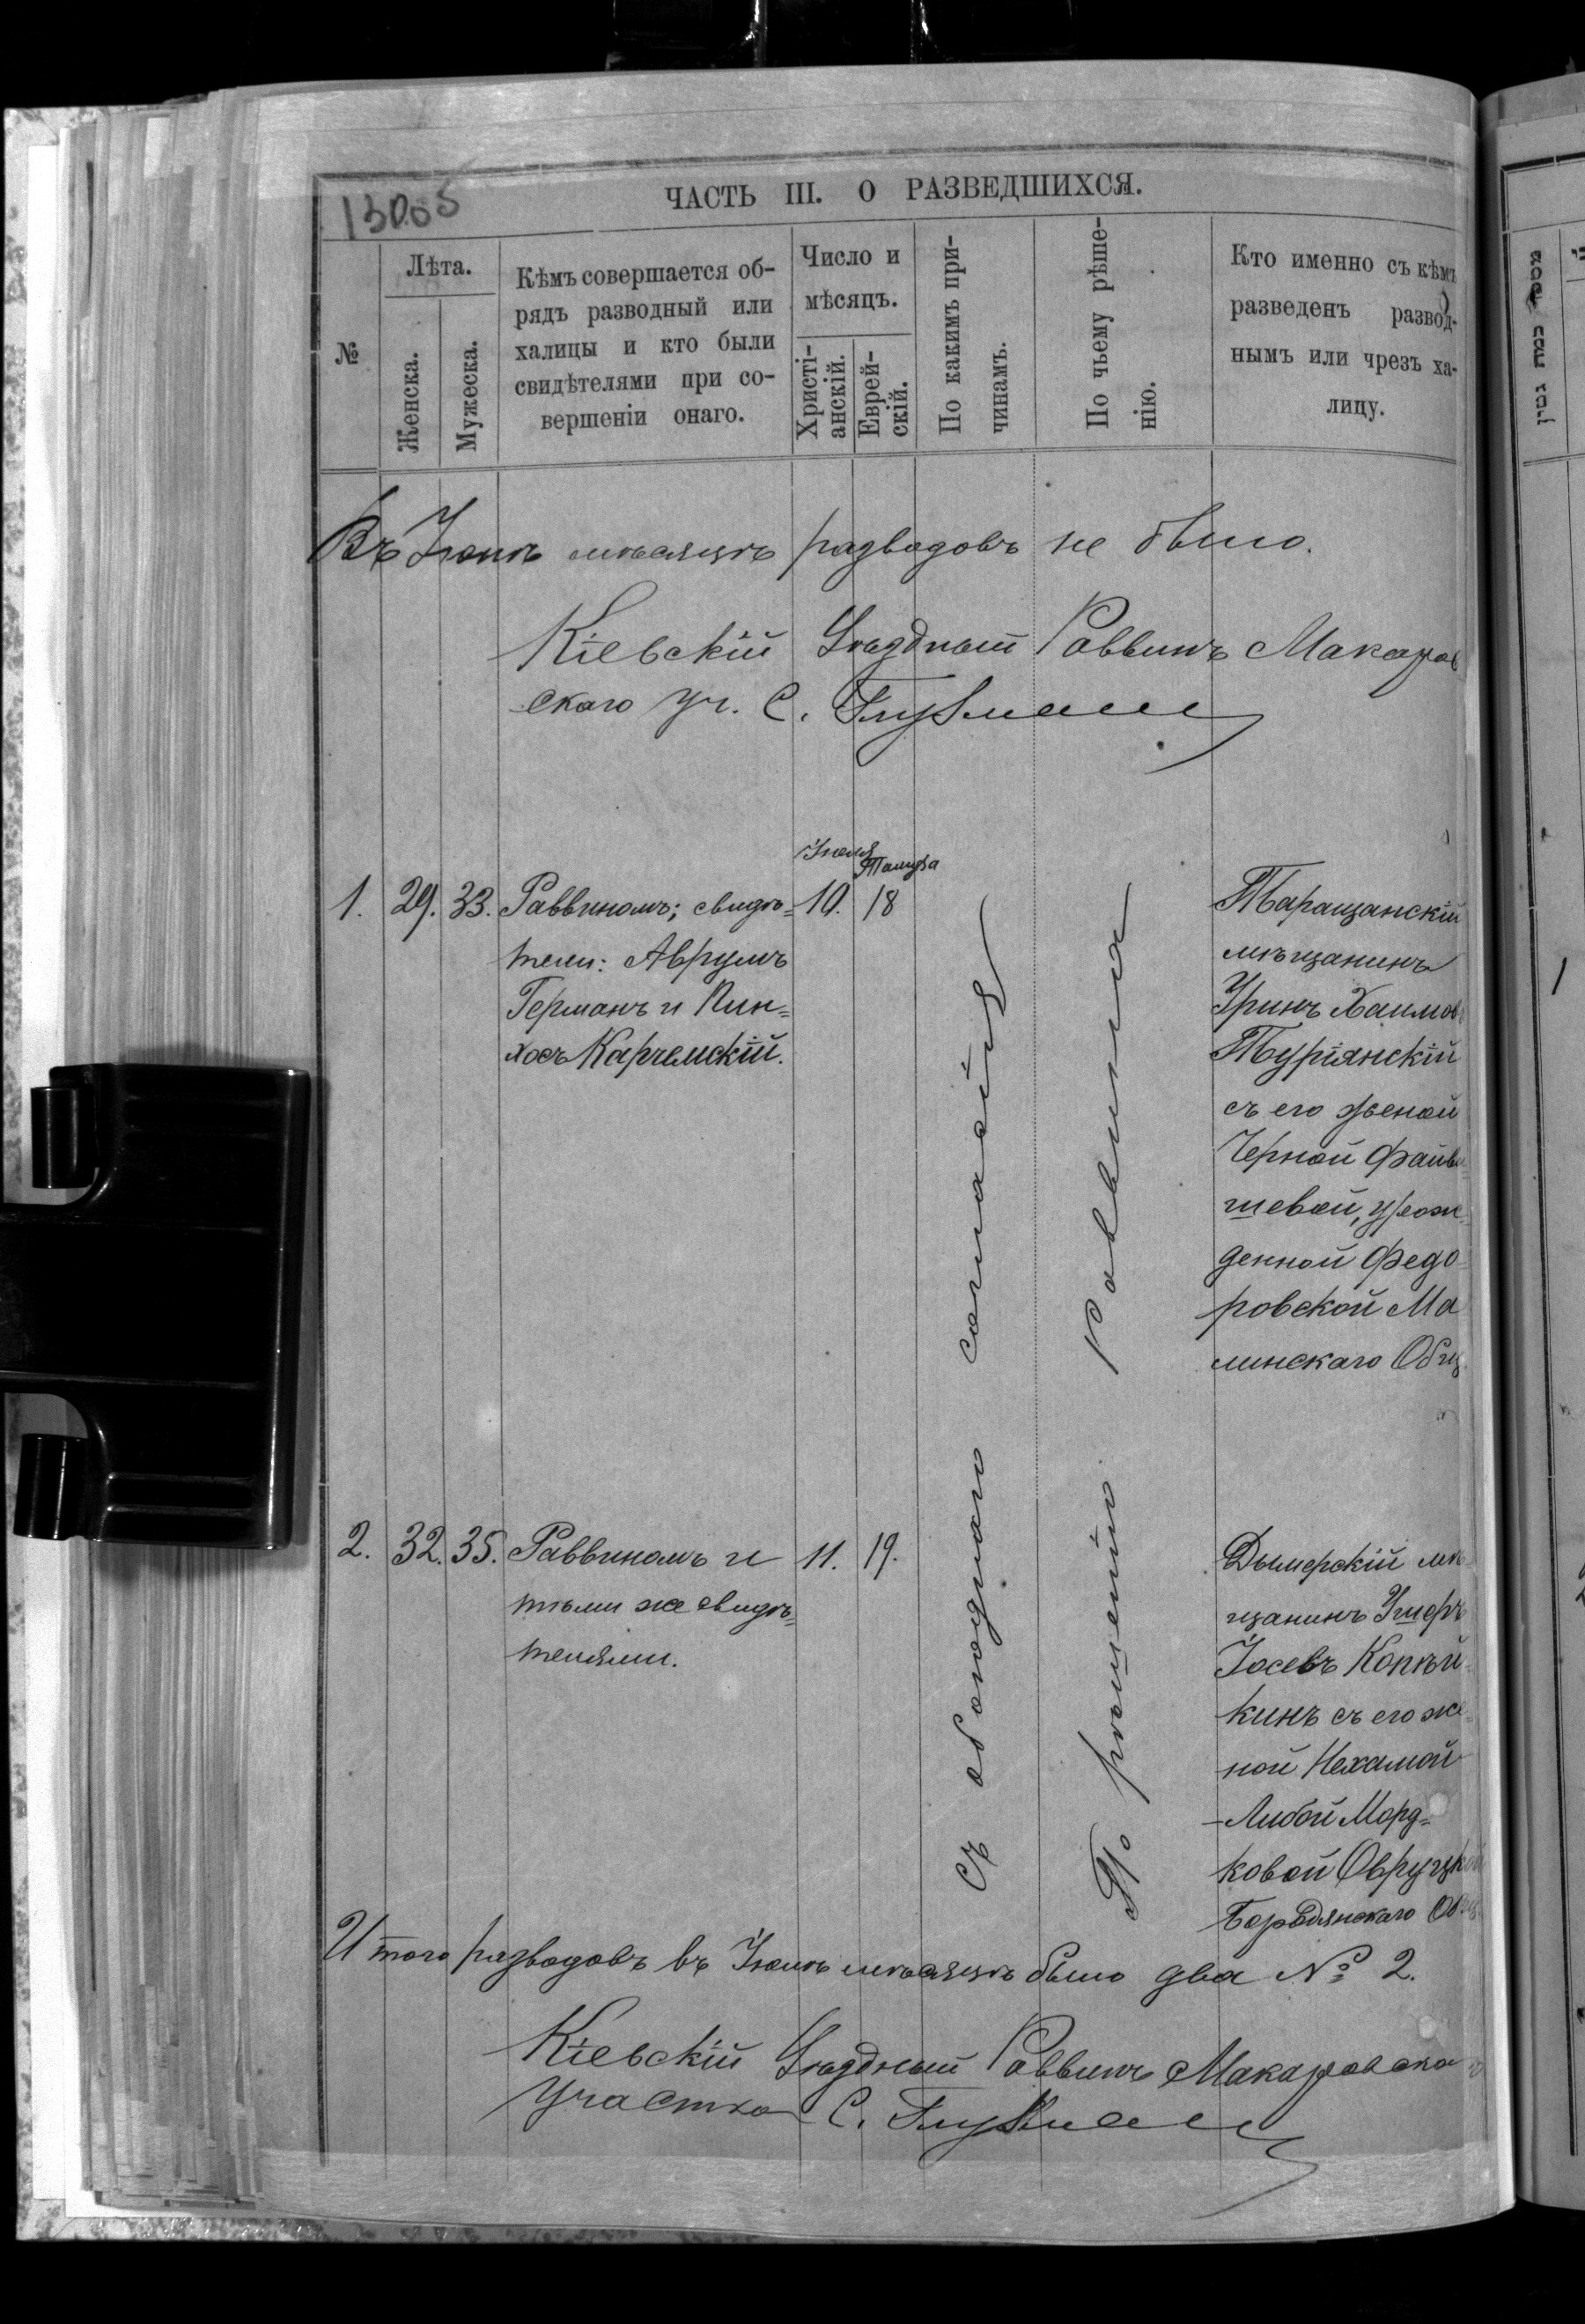 13005
ЧАСТЬ III. О РАЗВЕДШИХСЯ.
№
Лѣта.
Женска.
Мужеска.
Кѣмъ совершается об-
рядъ разводный или
халицы и кто были
свидѣтелями при со-
вершеніи онаго.
Число и
мѣсяцъ.
Христі-
анскій.
Еврей-
скій.
По какимъ при-
чинамъ.
По чьему рѣше-
нію.
Кто именно съ кѣмъ
разведенъ развод-
нымъ или чрезъ ха-
лицу.
Въ Іюнѣ мѣсяцѣ разводовъ не было.
Кіевскій Уѣздный Раввинъ Макаров
скаго уч. С. Глузман
Іюля
Тамуза
1. 29. 33.
Раввиномъ; свидѣ=
тели: Аврумъ
Германъ и Пин=
хосъ Карчемскій.
10. 18
Таращанскій
мѣщанинъ
Уринъ Хаимов
Туріянскій
съ его женой
Черной Файви
шевой, урож
денной Федо
ровской Ма
линскаго Общ.
2. 32. 35.
Раввиномъ и
тѣми же свидѣ=
телями.
11. 19.
Съ обоюднаго согласія
По рѣшенію Раввина
Дымерскій мѣ
щанинъ Умеръ
Іосевъ Копѣй
кинъ съ его же=
ной Нехамой
-Либой Морд=
ковой Овруцкой
Бородянскаго Общ.
Итого разводовъ въ Іюлѣ мѣсяцѣ было два № 2.
Кіевскій Уѣздный Раввинъ Макаровска
участка С. Глузман